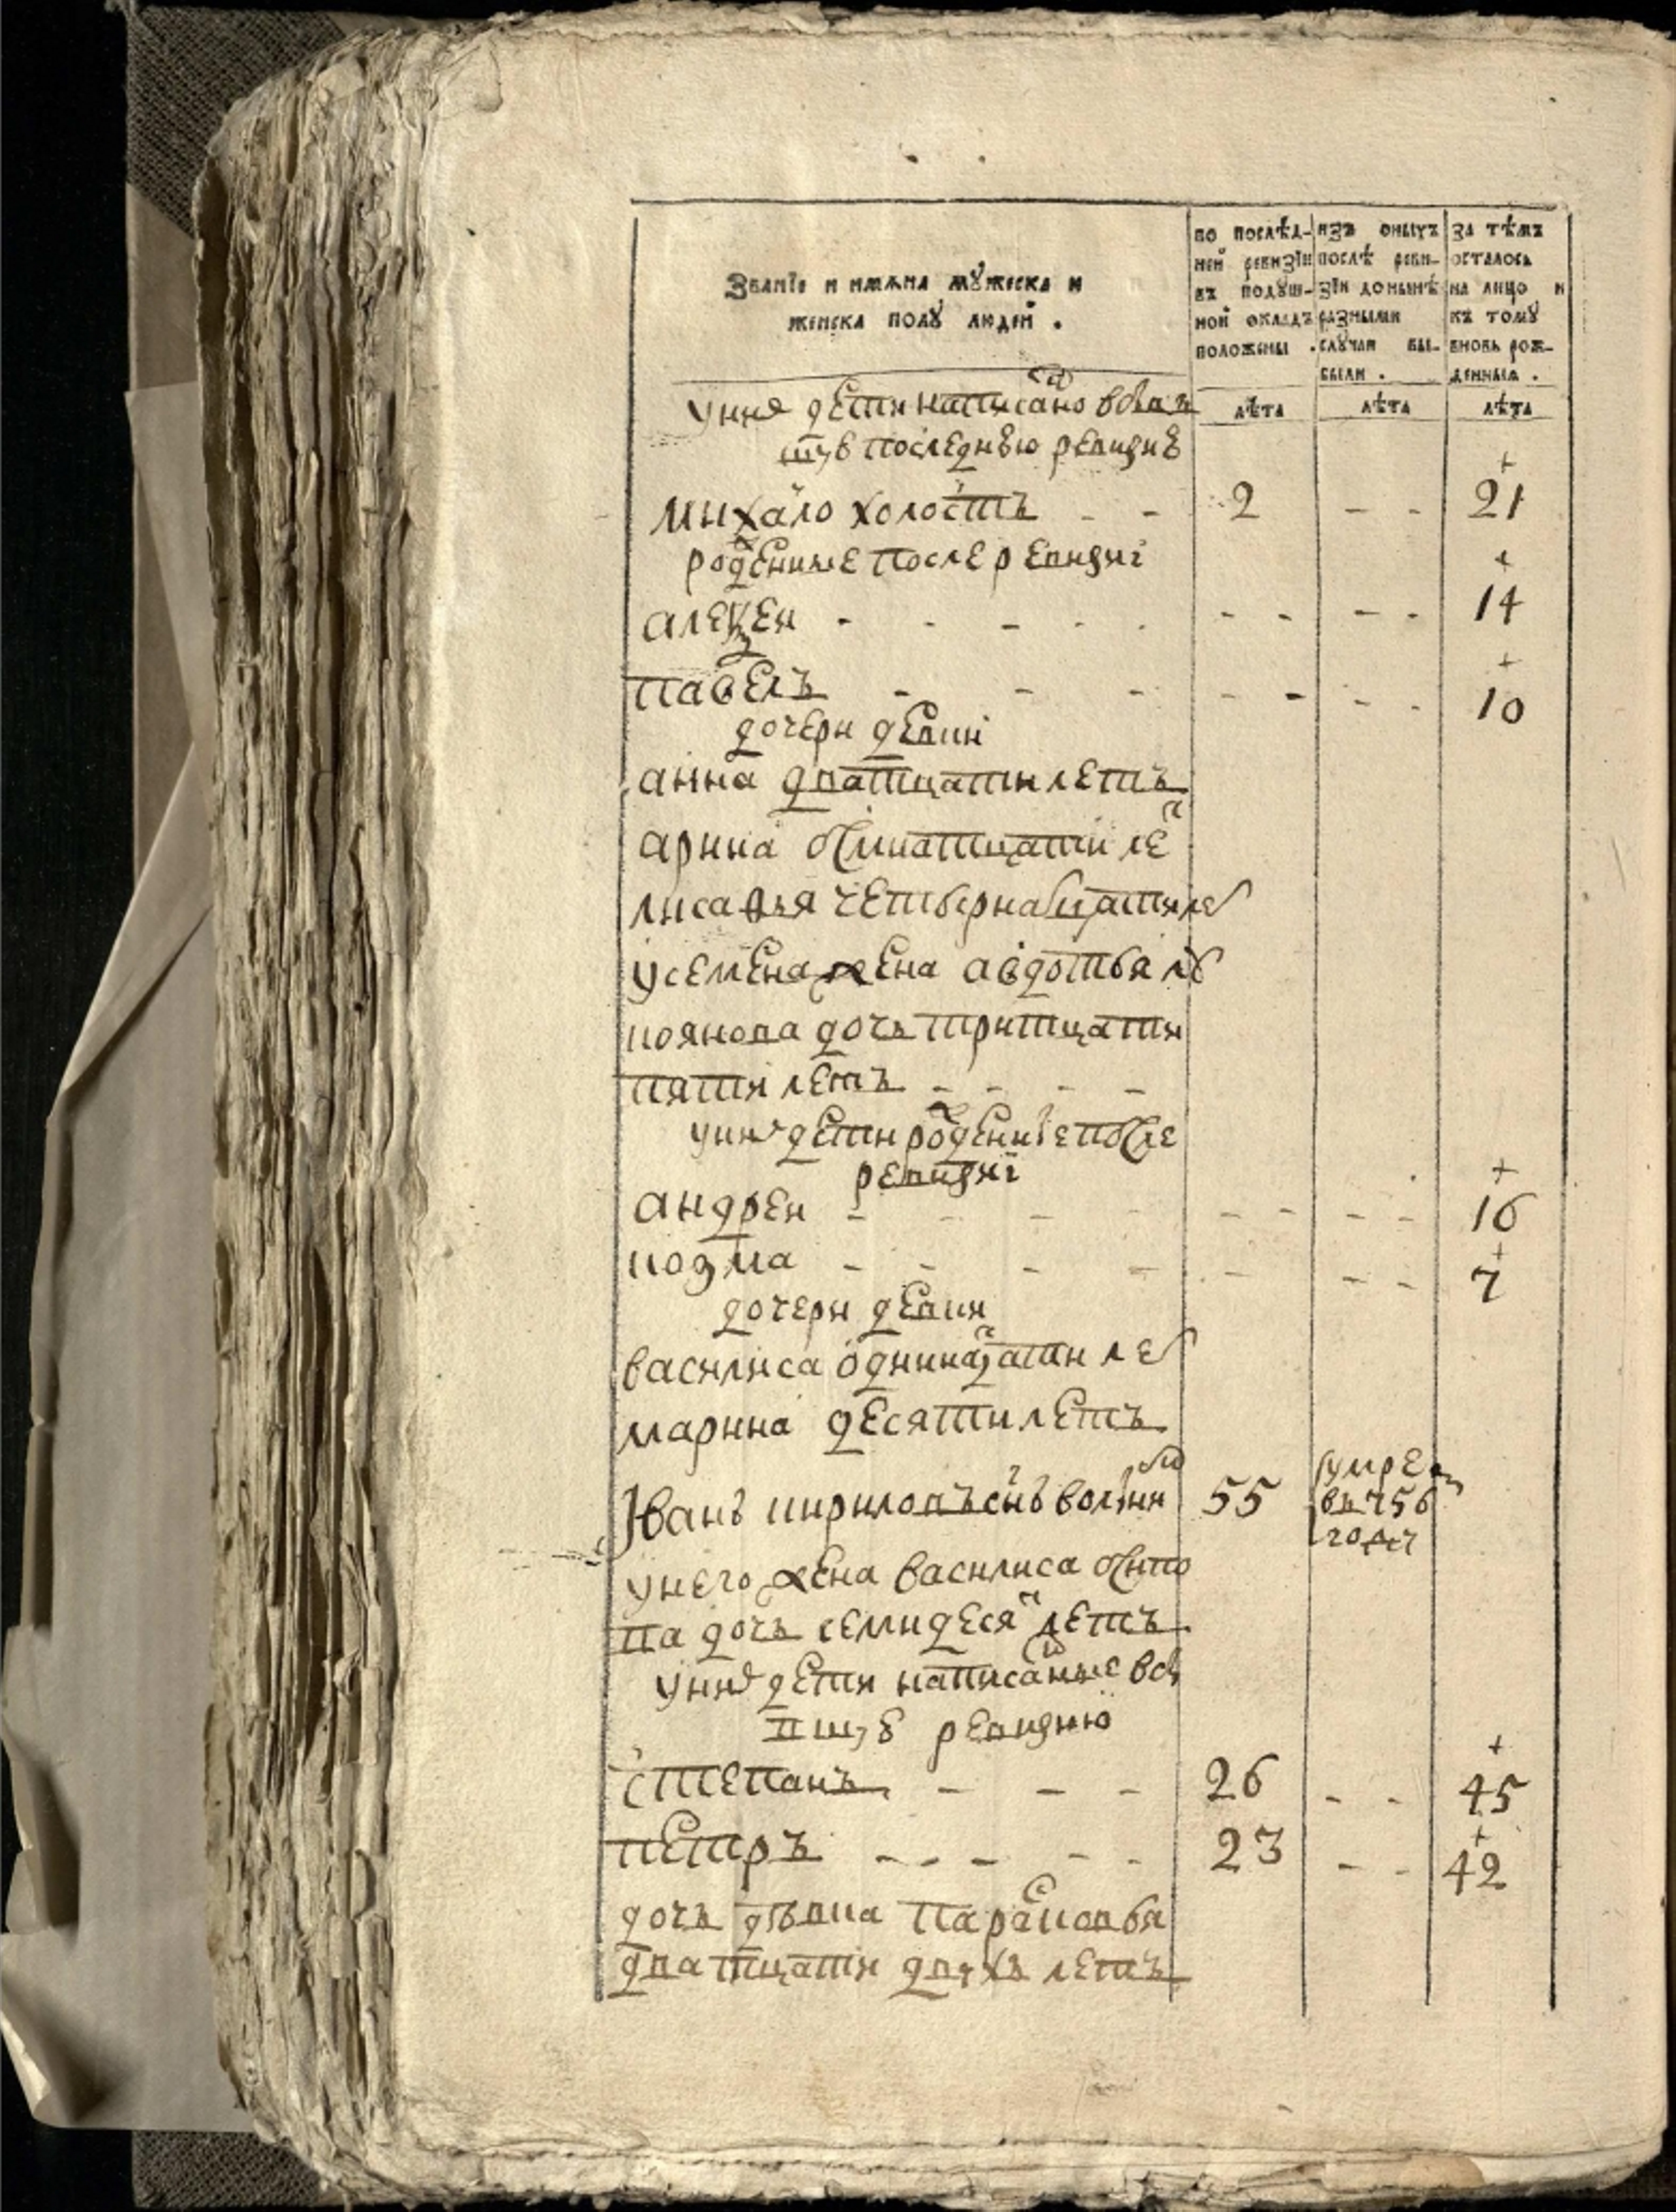 Званїе и имѧна мꙋжеска и
женска полꙋ людей .
по послѣд-
ней ревизїи
въ подꙋш-
ной окладъ
положены .
изъ оныхъ
послѣ реви-
зїи до нынѣ
разными
слꙋчаи вы-
были .
за тѣмъ
осталось
на лицо и
къ томꙋ
вновь рож-
денныя .
лѣта
лѣта
лѣта
уних дети написано
последнюю ревизию
михаило холостъ - - 2 - - 21
рожденные после ревизиї
алексеи - - - - - - - - - 14
павелъ - - - - - - - 10
дочери девки
анна дватцати летъ
арина осмнатцати ле
лисавья четвернатцати ле
усемена жена авдотья
коянова дочь тритцати
пяти летъ - - - -
уних дети рожденые после
ревизиї
андреи - - - - - - - - 16
козма - - - - - - - 7
дочери девки
василиса одинатцати ле
марина десяти летъ
Іванъ кириловъ снъ 55 умре
в 756
году
унего жена василиса осипо
ва дочь семидеся летъ
уних дети написаные
ревизию
степанъ - - - 26 - - 45
петръ - - - - - 23 - - 42
дочь девка парасковья
дватцати двухъ летъ